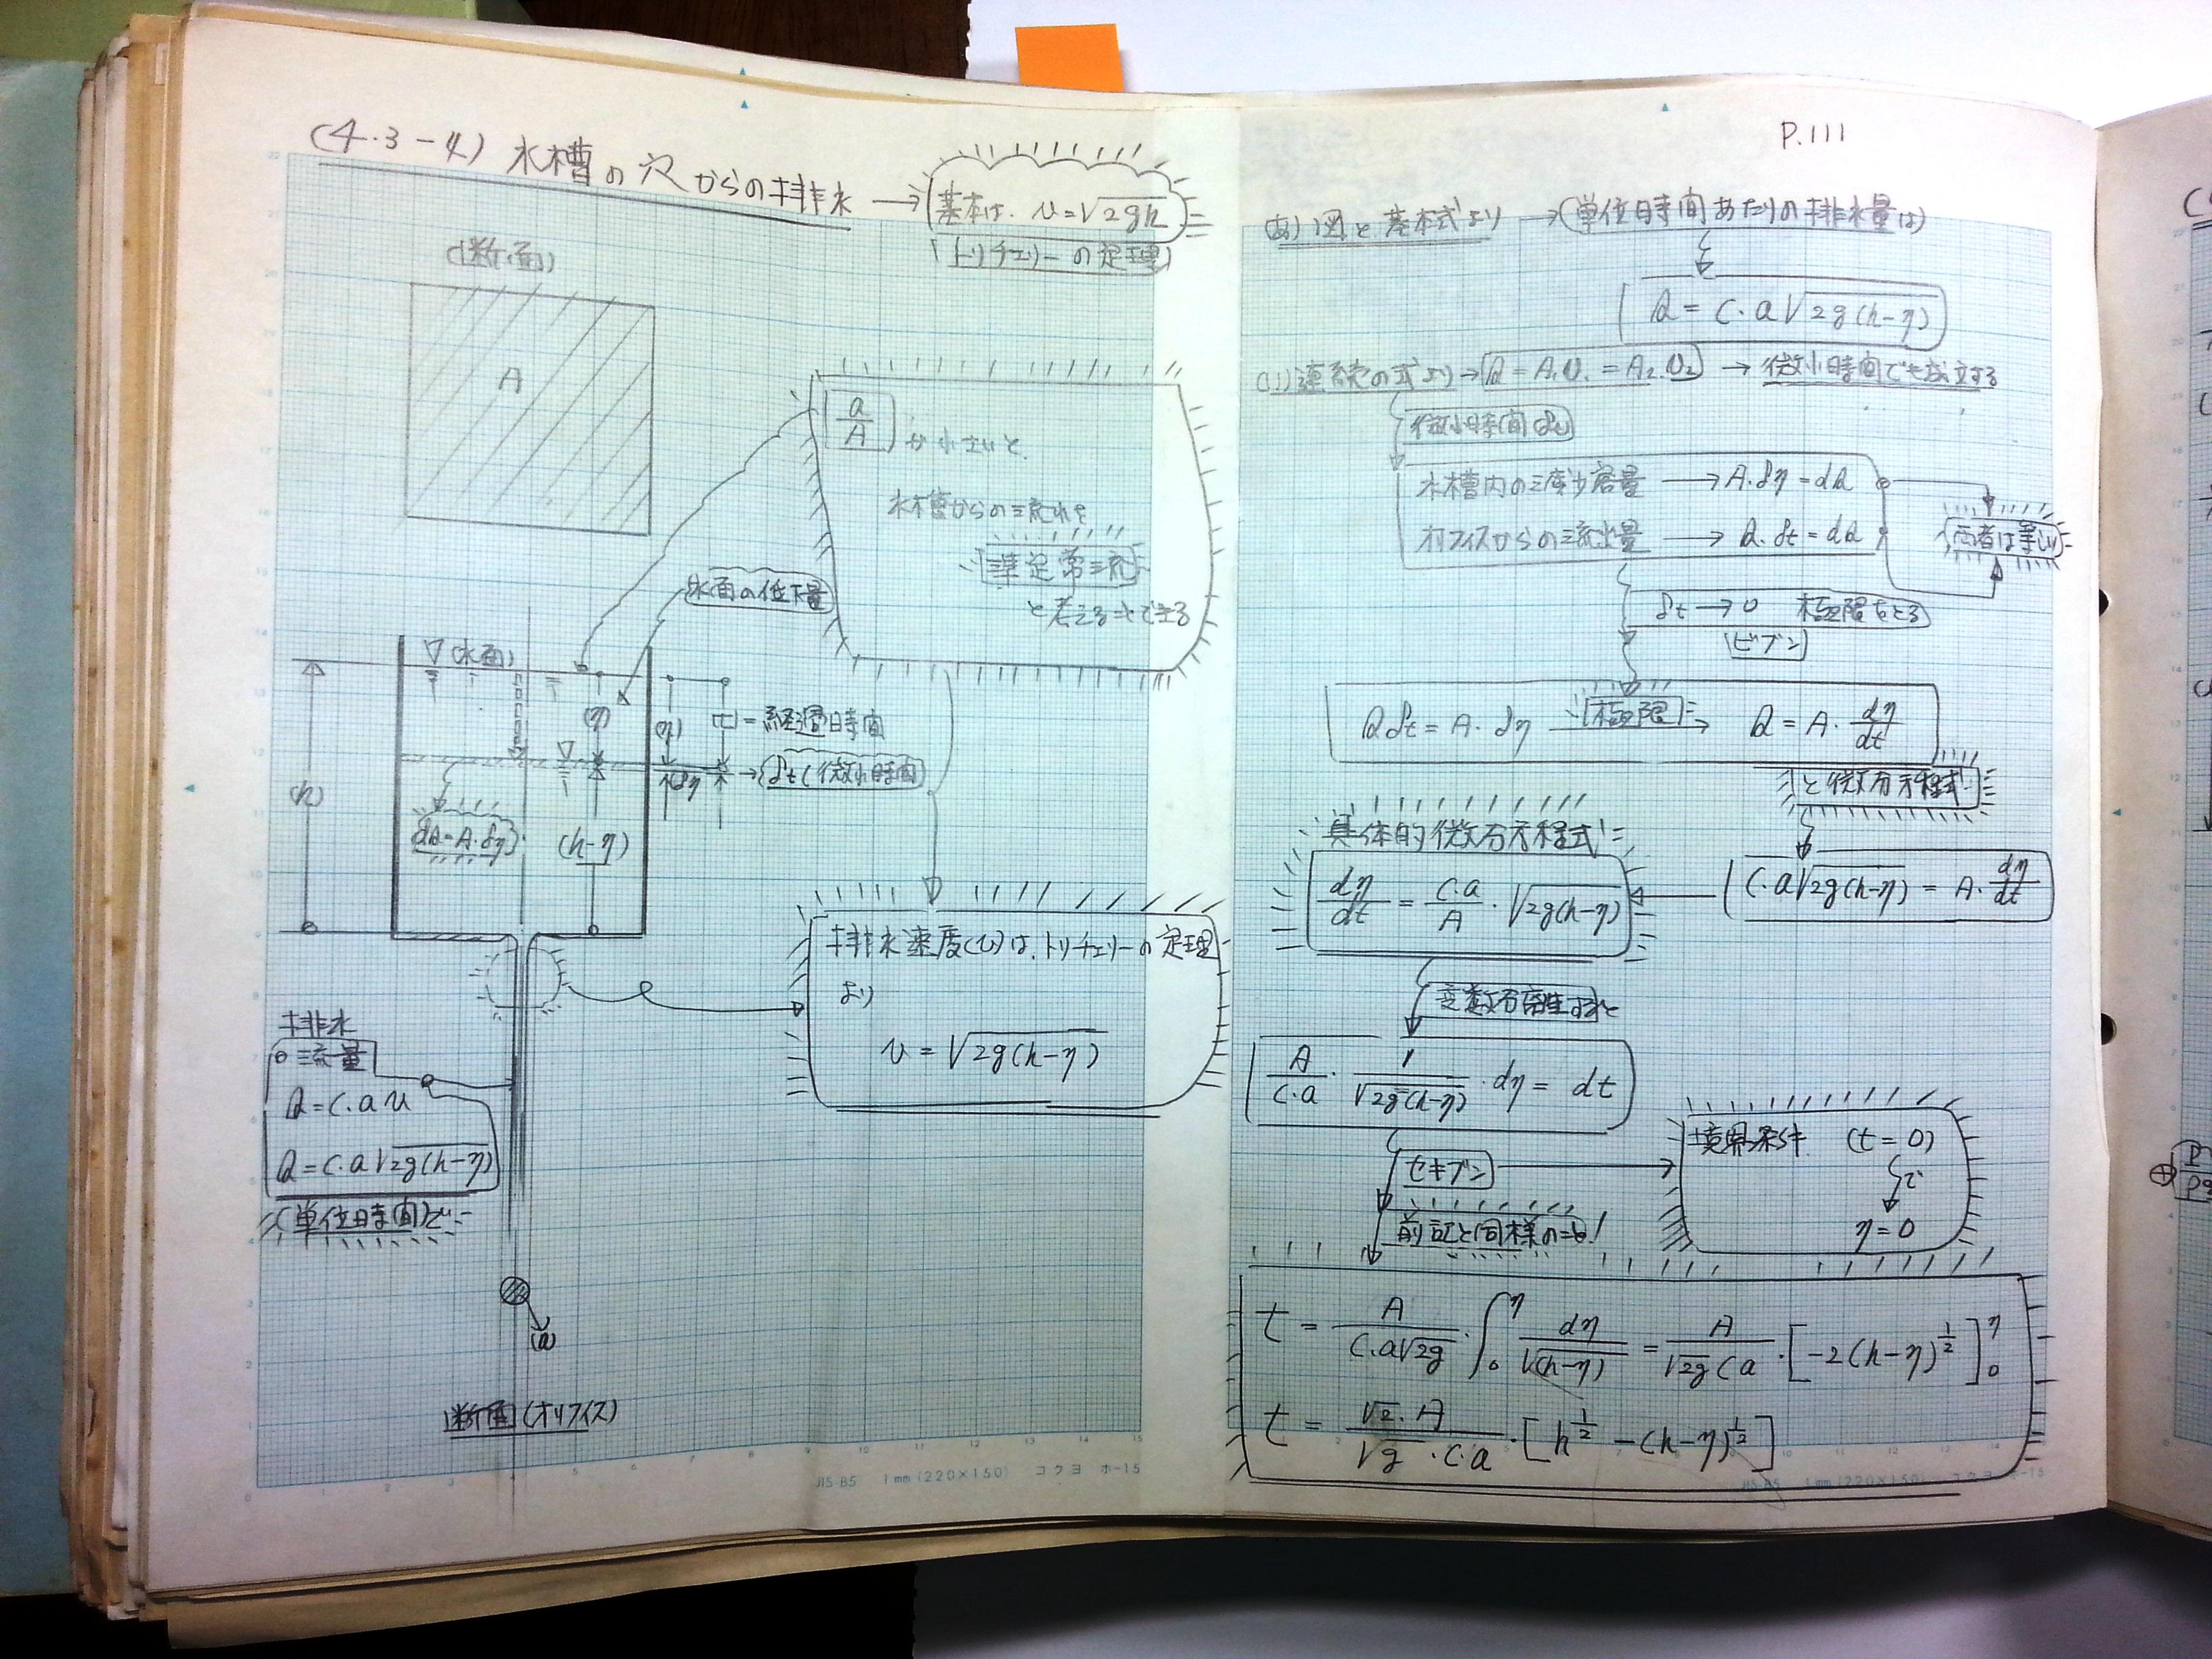 (4.3-4) 水槽の穴からの排水 → 基本は. v=√2gh
(トリチェリーの定理)
(断面)
A
a/A が小さいと
水槽からの流れを
準定常流
と考えることできる
水面の低下量
▽(水面)
(η)
(η)
(t)=経過時間
δη → δt(微小時間)
(h)
dQ=A.δη
(h-η)
排水速度(v)は、トリチェリーの定理
より
v = √2g(h-η)
排水
○流量
Q=C.a v
Q=C.a√2g(h-η)
(単位時間)で
(a)
断面(オリフィス)
JIS-B5 1mm(220×150) コクヨ ホ-15
P.111
(あ) 図と基本式より → (単位時間あたりの排水量は)
Q = C.a√2g(h-η)
(い)連続の式より→ Q=A₁.v₁=A₂.v₂ → 微小時間でも成立する
微小時間 δt
水槽内の減少容量 → A.δη=dQ
オリフィスからの流出量 → Q.δt=dQ
両者は等しい
δt→0 極限をとる
(ビブン)
Qδt=A.δη 極限→ Q=A.dη/dt
と微分方程式
C.a√2g(h-η) = A.dη/dt
具体的微分方程式
dη/dt = C.a/A . √2g(h-η)
変数分離すると
A/C.a . 1/√2g(h-η) . dη = dt
セキブン
境界条件 (t=0)
で
η=0
前記と同様のこと!
t = A/C.a√2g . ∫₀^η dη/√(h-η) = A/√2g C a . [-2(h-η)^1/2]₀^η
t = √2.A/√g.C.a . [h^1/2 -(h-η)^1/2]
JIS-B5 1mm(220×150) コクヨ ホ-15